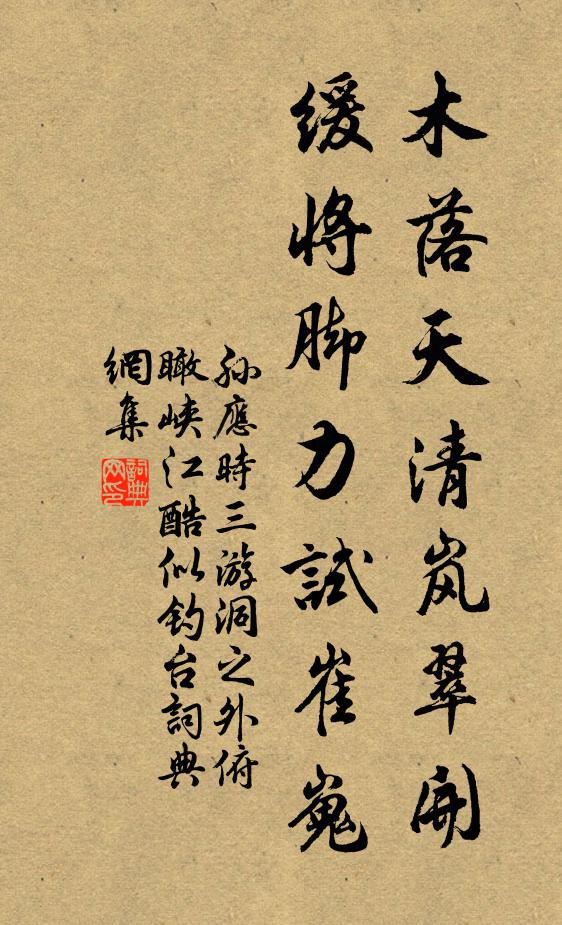 木落天清岚翠開
緩將脚力試崔嵬
孫應時三游洞之外俯
瞰峡江酷似钓台詞典
網集
詞典
网印